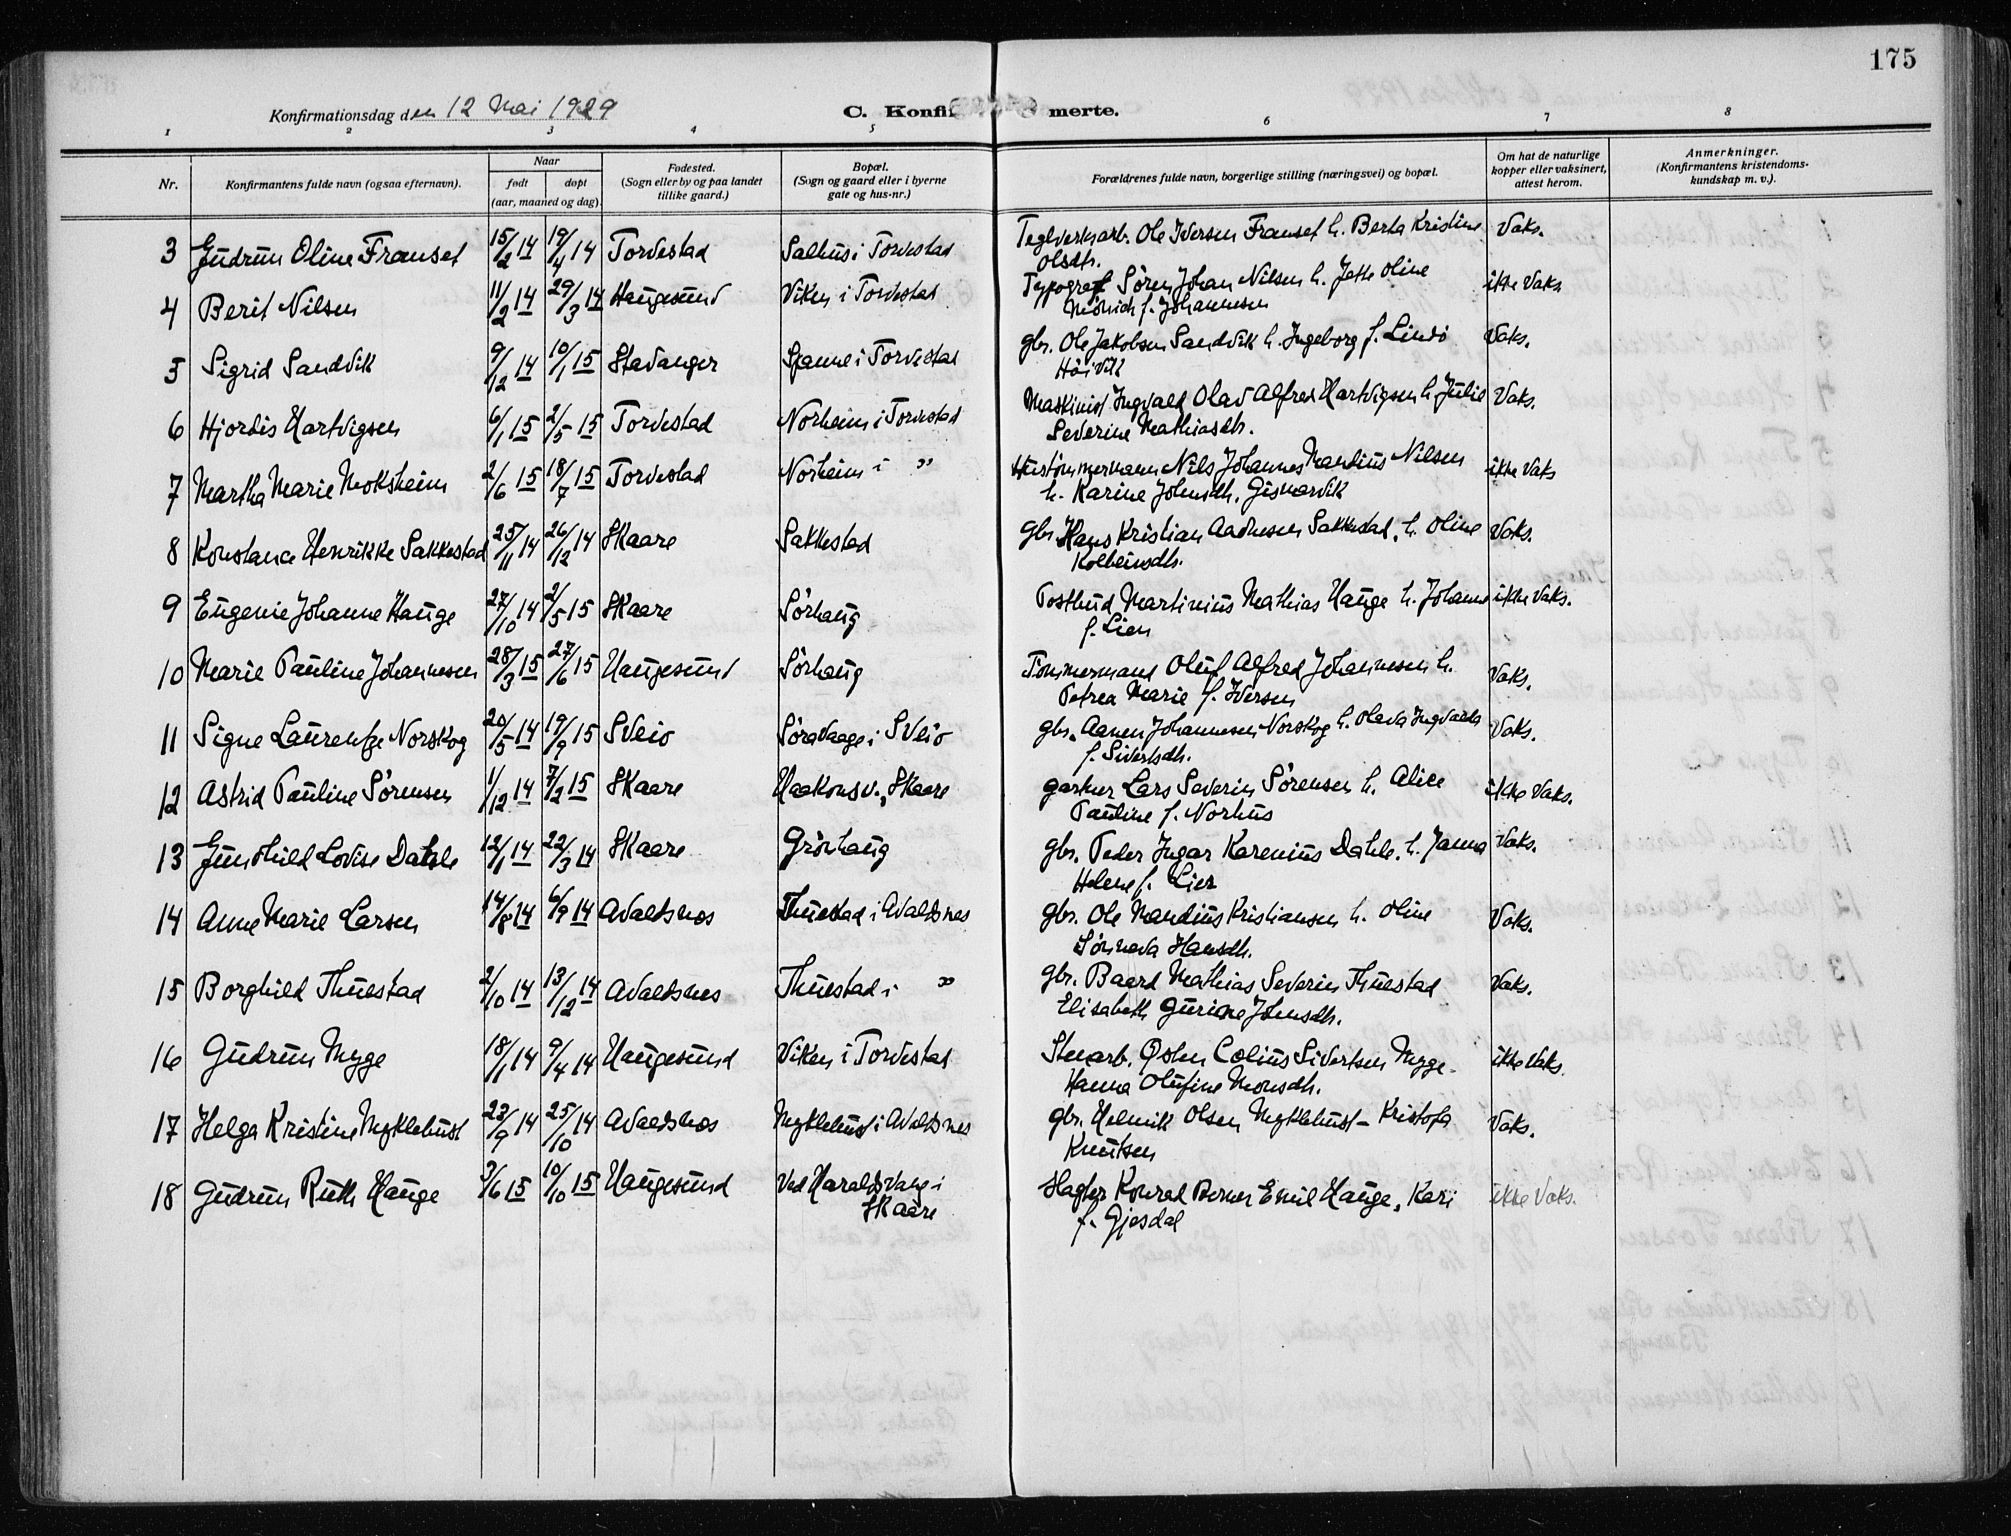 175
Konfirmationsdag den 12 Mai 1929 C. Konfirmerte.
1 2 3 4 5 6 7 8
Nr. Konfirmantens fulde navn (ogsaa efternavn). Naar født døpt (aar, maaned og dag). Fødested. (Sogn eller by og paa landet tillike gaard.) Bopæl. (Sogn og gaard eller i byerne gate og hus-nr.) Forældrenes fulde navn, borgerlige stilling (næringsvei) og bopæl. Om hat de naturlige kopper eller vaksinert, attest herom. Anmerkninger. (Konfirmantens kristendomskundskap m. v.).
3 Gudrun Oline Franset 15/2 14 19/4 14 Torvestad Salhus i Torvestad Teglverksarb. Ole Iversen Franset h. Berta Kristine Vaks.
Olsdtr.
4 Berit Nilsen 11/2 14 29/3 14 Haugesund Viken i Torvestad Typograf Sören Johan Nilsen h. Jette Oline ikke Vaks
Mönich f. Johannesen
5 Sigrid Sandvik 9/12 14 10/1 15 Stavanger Spanne i Torvestad gbr. Ole Jakobsen Sandvik h. Ingeborg f. Lindö Vaks.
Höivik
6 Hjordis Hartvigsen 6/1 15 2/5 15 Torvestad Norheim i Torvestad Maskinist Ingvald Olav Alfred Hartvigsen h. Julie Vaks.
Severine Mathiasdtr.
7 Martha Marie Moksheim 2/6 15 18/7 15 Torvestad Norheim i " Hustömmermann Nils Johannes Mandius Nilsen ikke Vaks
h. Karine Johnsdtr. Gismarvik
8 Konstance Henrikke Sakkestad 25/11 14 26/12 14 Skaare Sakkestad gbr. Hans Kristian Aadnesen Sakkestad, h. Oline Vaks.
Kolbeinsdtr.
9 Eugenie Johanne Hauge 27/10 14 2/5 15 Skaare Sörhaug Postbud Martinius Mathias Hauge h. Johanne ikke Vaks.
f. Lien
10 Marie Pauline Johannesen 28/3 15 27/6 15 Haugesund Sörhaug Tömmermand Oluf Alfred Johannesen h. Vaks.
Petrea Marie f. Iversen
11 Signe Laurentze Norskog 20/5 14 19/9 15 Sveio Söravaage i Sveio gbr. Aanen Johannesen Norskog h. Olava Ingvarda Vaks.
f. Sivertsdtr.
12 Astrid Pauline Sörensen 1/12 14 7/2 15 Skaare Haakonsv., Skaare gartner Lars Severin Sörensen h. Alice ikke Vaks.
Pauline f. Norhus
13 Gunhild Lovise Dahle 12/1 14 22/3 14 Skaare Grönhaug gbr. Peder Ingar Karenius Dahle. h. Janna Vaks.
Helene f. Lier
14 Anne Marie Larsen 14/8 14 6/9 14 Avaldsnes Thuestad i Avaldsnes gbr. Ole Mandius Kristiansen h. Oline Vaks.
Sönneva Hansdtr.
15 Borghild Thuestad 2/10 14 13/12 14 Avaldsnes Thuestad i " gbr. Baard Mathias Severin Thuestad Vaks.
Elisabeth Gurine Johnsdtr.
16 Gudrun Mygge 18/1 14 9/4 14 Haugesund Viken i Torvestad Stuarb. Osten Colius Sivertsen Mygge ikke Vaks.
Hanna Olufine Monsdtr.
17 Helga Kristine Myklebust 23/9 14 25/10 14 Avaldsnes Myklebust i Avaldsnes gbr. Helmik Olsen Myklebust - Kristofa Vaks.
Knutsen
18 Gudrun Ruth Hauge 3/6 15 10/10 15 Haugesund Ved Haraldsvang i Slagter Konrad Berner Emil Hauge, Kari ikke Vaks.
Skaare f. Gjesdal